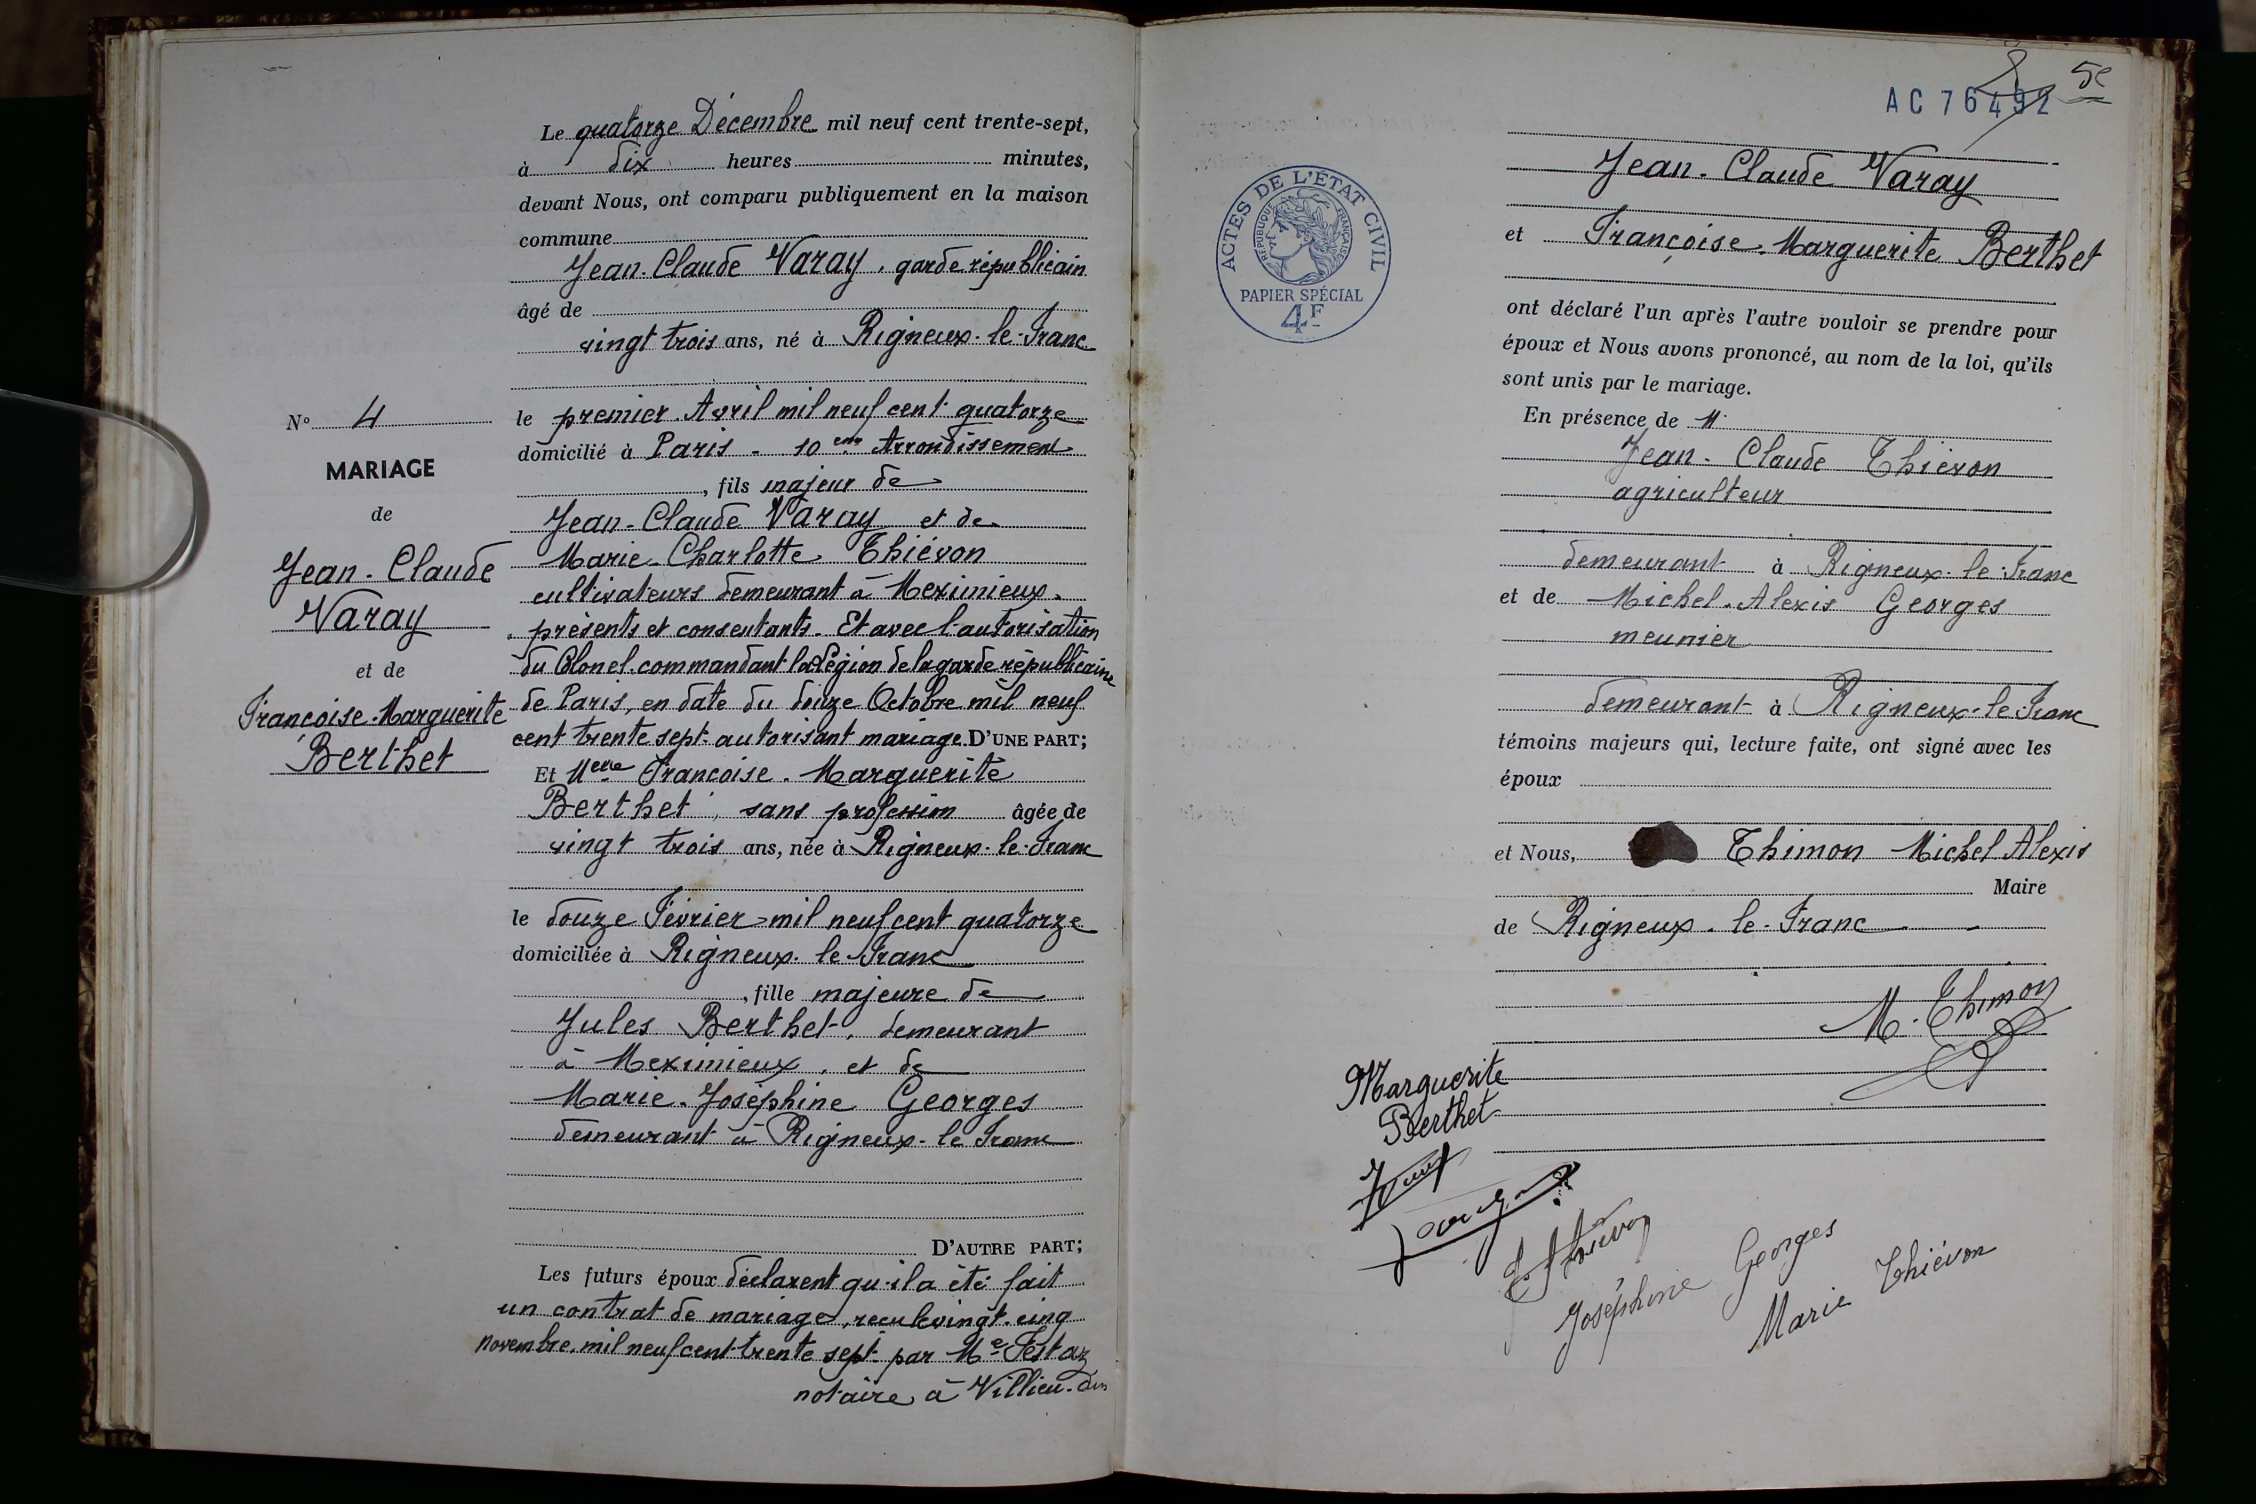 Le quatorze Décembre mil neuf cent trente-sept,
à dix heures minutes,
devant Nous, ont comparu publiquement en la maison
commune
Jean-Claude Varay, garde républicain
âgé de
vingt trois ans, né à Rigneux-le-Franc
le premier Avril mil neuf cent quatorze
domicilié à Paris - 10eme Arrondissement
, fils majeur de
Jean-Claude Varay et de
Marie-Charlotte Thiévon
cultivateurs demeurant à Meximieux.
présents et consentants. Et avec l'autorisation
du Colonel commandant la Légion de la garde républicaine
de Paris, en date du douze Octobre mil neuf
cent trente sept autorisant mariage. D'UNE PART;
Et Melle Françoise-Marguerite
Berthet, sans profession âgée de
vingt trois ans, née à Rigneux-le-Franc
le douze Février mil neuf cent quatorze
domiciliée à Rigneux-le-Franc
, fille majeure de
Jules Berthet, demeurant
à Meximieux, et de
Marie-Joséphine Georges
demeurant à Rigneux-le-Franc
D'AUTRE PART;
Les futurs époux déclarent qu'il a été fait
un contrat de mariage, reçu le vingt-cinq
novembre mil neuf cent trente sept par Me Festaz
notaire à Villieu.
N° 4
MARIAGE
de
Jean-Claude
Varay
et de
Françoise-Marguerite
Berthet
5e
AC 76492
ACTES DE L'ÉTAT CIVIL
RÉPUBLIQUE FRANÇAISE
PAPIER SPÉCIAL
4F
Jean-Claude Varay
et Françoise-Marguerite Berthet
ont déclaré l'un après l'autre vouloir se prendre pour
époux et Nous avons prononcé, au nom de la loi, qu'ils
sont unis par le mariage.
En présence de M.
Jean-Claude Thiévon
agriculteur
demeurant à Rigneux-le-Franc
et de Michel-Alexis Georges
meunier
demeurant à Rigneux-le-Franc
témoins majeurs qui, lecture faite, ont signé avec les
époux
et Nous, Thimon Michel Alexis
Maire
de Rigneux-le-Franc
M. Thimon
Marguerite
Berthet
Joséphine Georges
Marie Thiévon